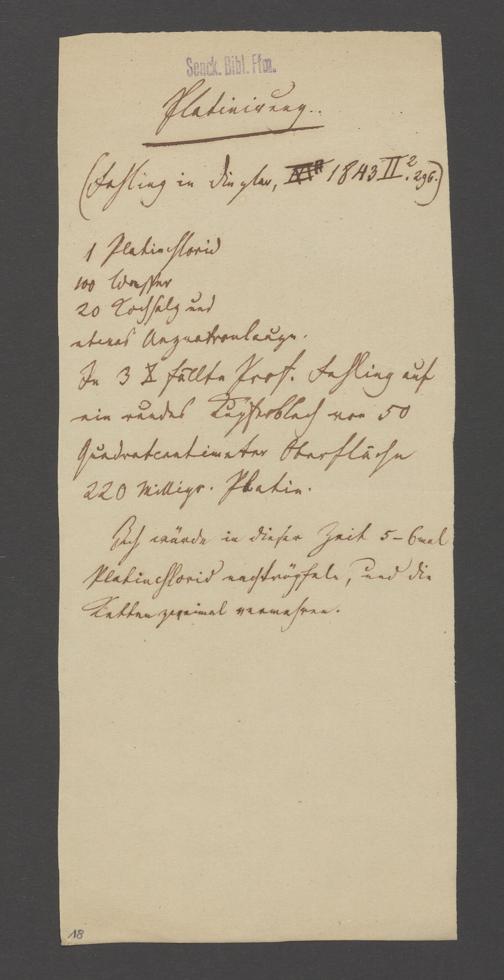 Senck. Bibl. Ffm.
Platinirung.
(Fehling in Dingler, 1843 II. 2. 296.)
1 Platinchlorid
100 Wasser
20 Kochsalz und
etwas Aeznatronlauge.
In 3 X fällte Prof. Fehling auf
ein rundes Kupferblech von 50
Quadratcentimeter Oberfläche
220 Milligr. Platin.
Ich würde in dieser Zeit 5-6mal
Platinchlorid nachtröpfeln, und die
Ketten zweimal vermehren.
18